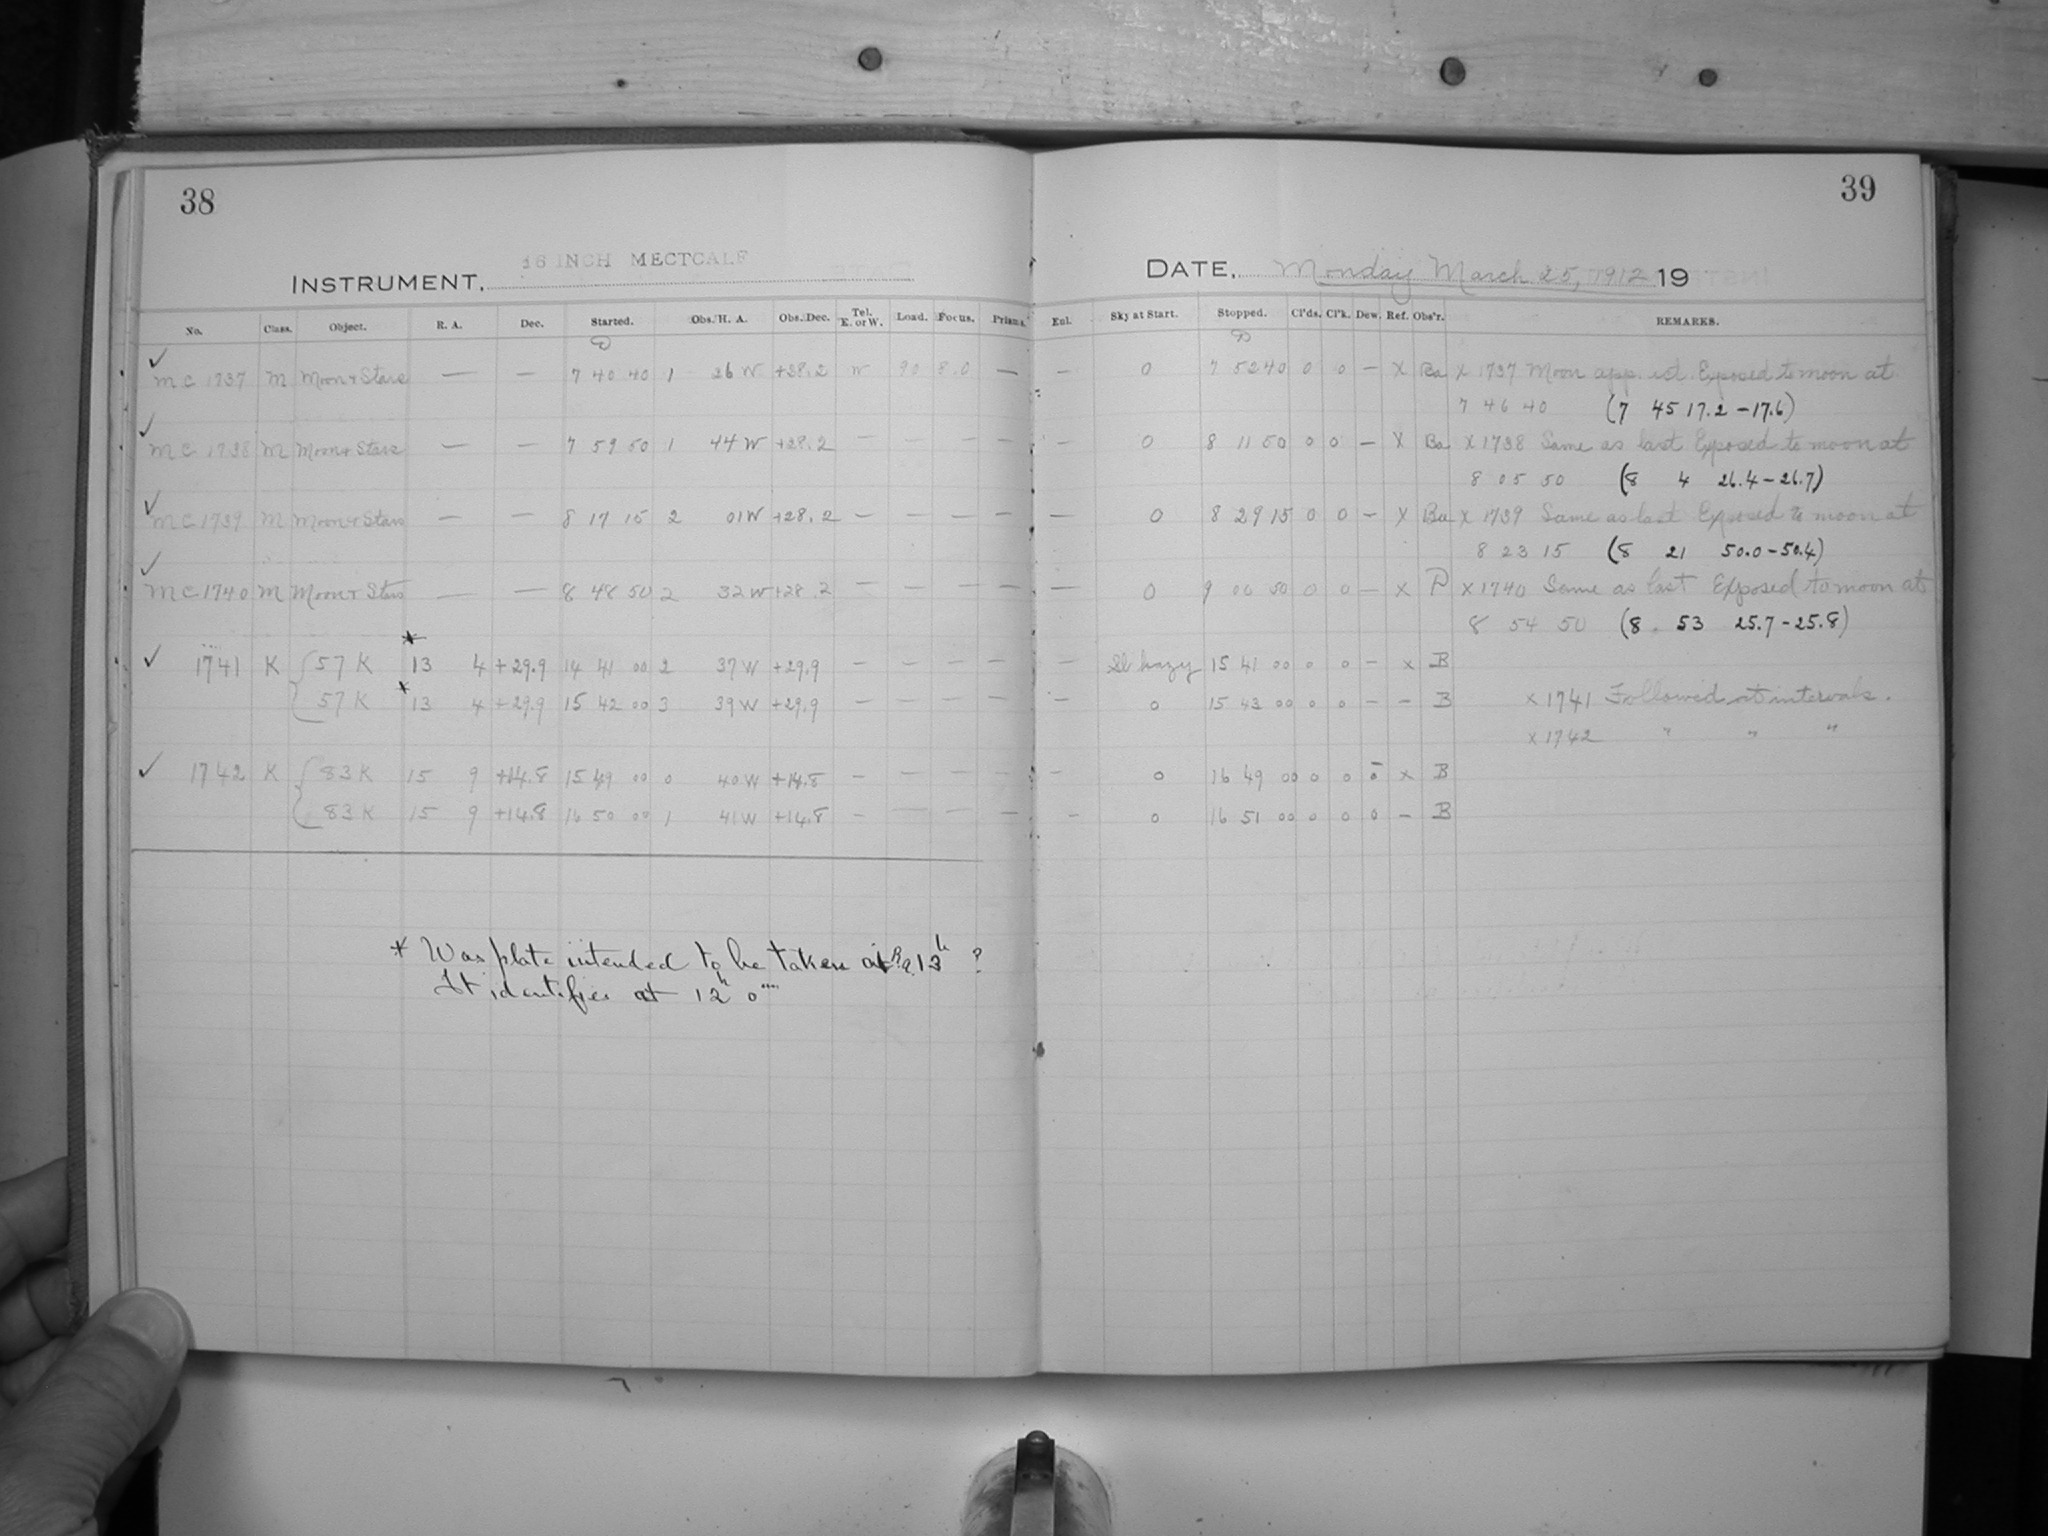 38
39
INSTRUMENT, 16 INCH MECTCALF
DATE, Monday March 25, 1912 19
No. Class. Object. R. A. Dec. Started. Obs. H. A. Obs. Dec. Tel. E. or W. Load. Focus. Prisms. Enl. Sky at Start. Stopped. Cl'ds. Cl'k. Dew. Ref. Obs'r. REMARKS.
✓ MC 1737 M Moon + Stars — — 7 40 40 1 26 W +28.2 W 90 8.0 — — 0 7 52 40 0 0 — X Ba X 1737 Moon app. ☾ Exposed to moon at
7 46 40 (7 45 17.2 – 17.6)
✓ MC 1738 M Moon + Stars — — 7 59 50 1 44 W +28.2 — — — — — 0 8 11 50 0 0 — X Ba X 1738 Same as last Exposed to moon at
8 05 50 (8 4 26.4 – 26.7)
✓ MC 1739 M Moon + Stars — — 8 17 15 2 01 W +28.2 — — — — — 0 8 29 15 0 0 — X Ba X 1739 Same as last Exposed to moon at
8 23 15 (8 21 50.0 – 50.4)
✓ MC 1740 M Moon + Stars — — 8 48 50 2 32 W +28.2 — — — — — 0 9 00 50 0 0 — X P X 1740 Same as last Exposed to moon at
8 54 50 (8 53 25.7 – 25.8)
✓ 1741 K 57 K * 13 4 +29.9 14 41 00 2 37 W +29.9 — — — — — Sl hazy 15 41 00 0 0 — X B
57 K * 13 4 +29.9 15 42 00 3 39 W +29.9 — — — — — 0 15 43 00 0 0 — — B X 1741 Followed at intervals.
X 1742 " " "
✓ 1742 K 83 K 15 9 +14.8 15 49 00 0 40 W +14.8 — — — — — 0 16 49 00 0 0 0 X B
83 K 15 9 +14.8 16 50 00 1 41 W +14.8 — — — — — 0 16 51 00 0 0 0 — B
* Was plate intended to be taken at R.a. 13h ?
It identifies at 12h 0m